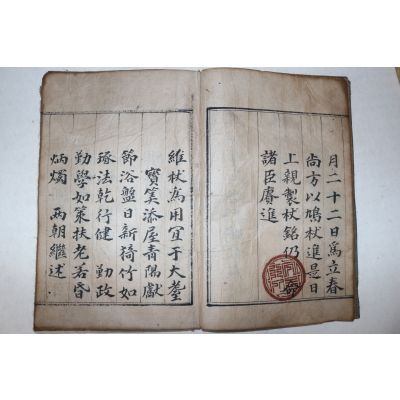 月二十二日爲立春
尙方以鳩杖進是日
上親製杖銘仍命
諸臣賡進
維杖爲用宜于大耋
寶筭添屋靑陽獻
節浴盤日新猗竹如
琢法乾行健 勤政
勤學如策扶老若昏
炳燭 兩朝繼述